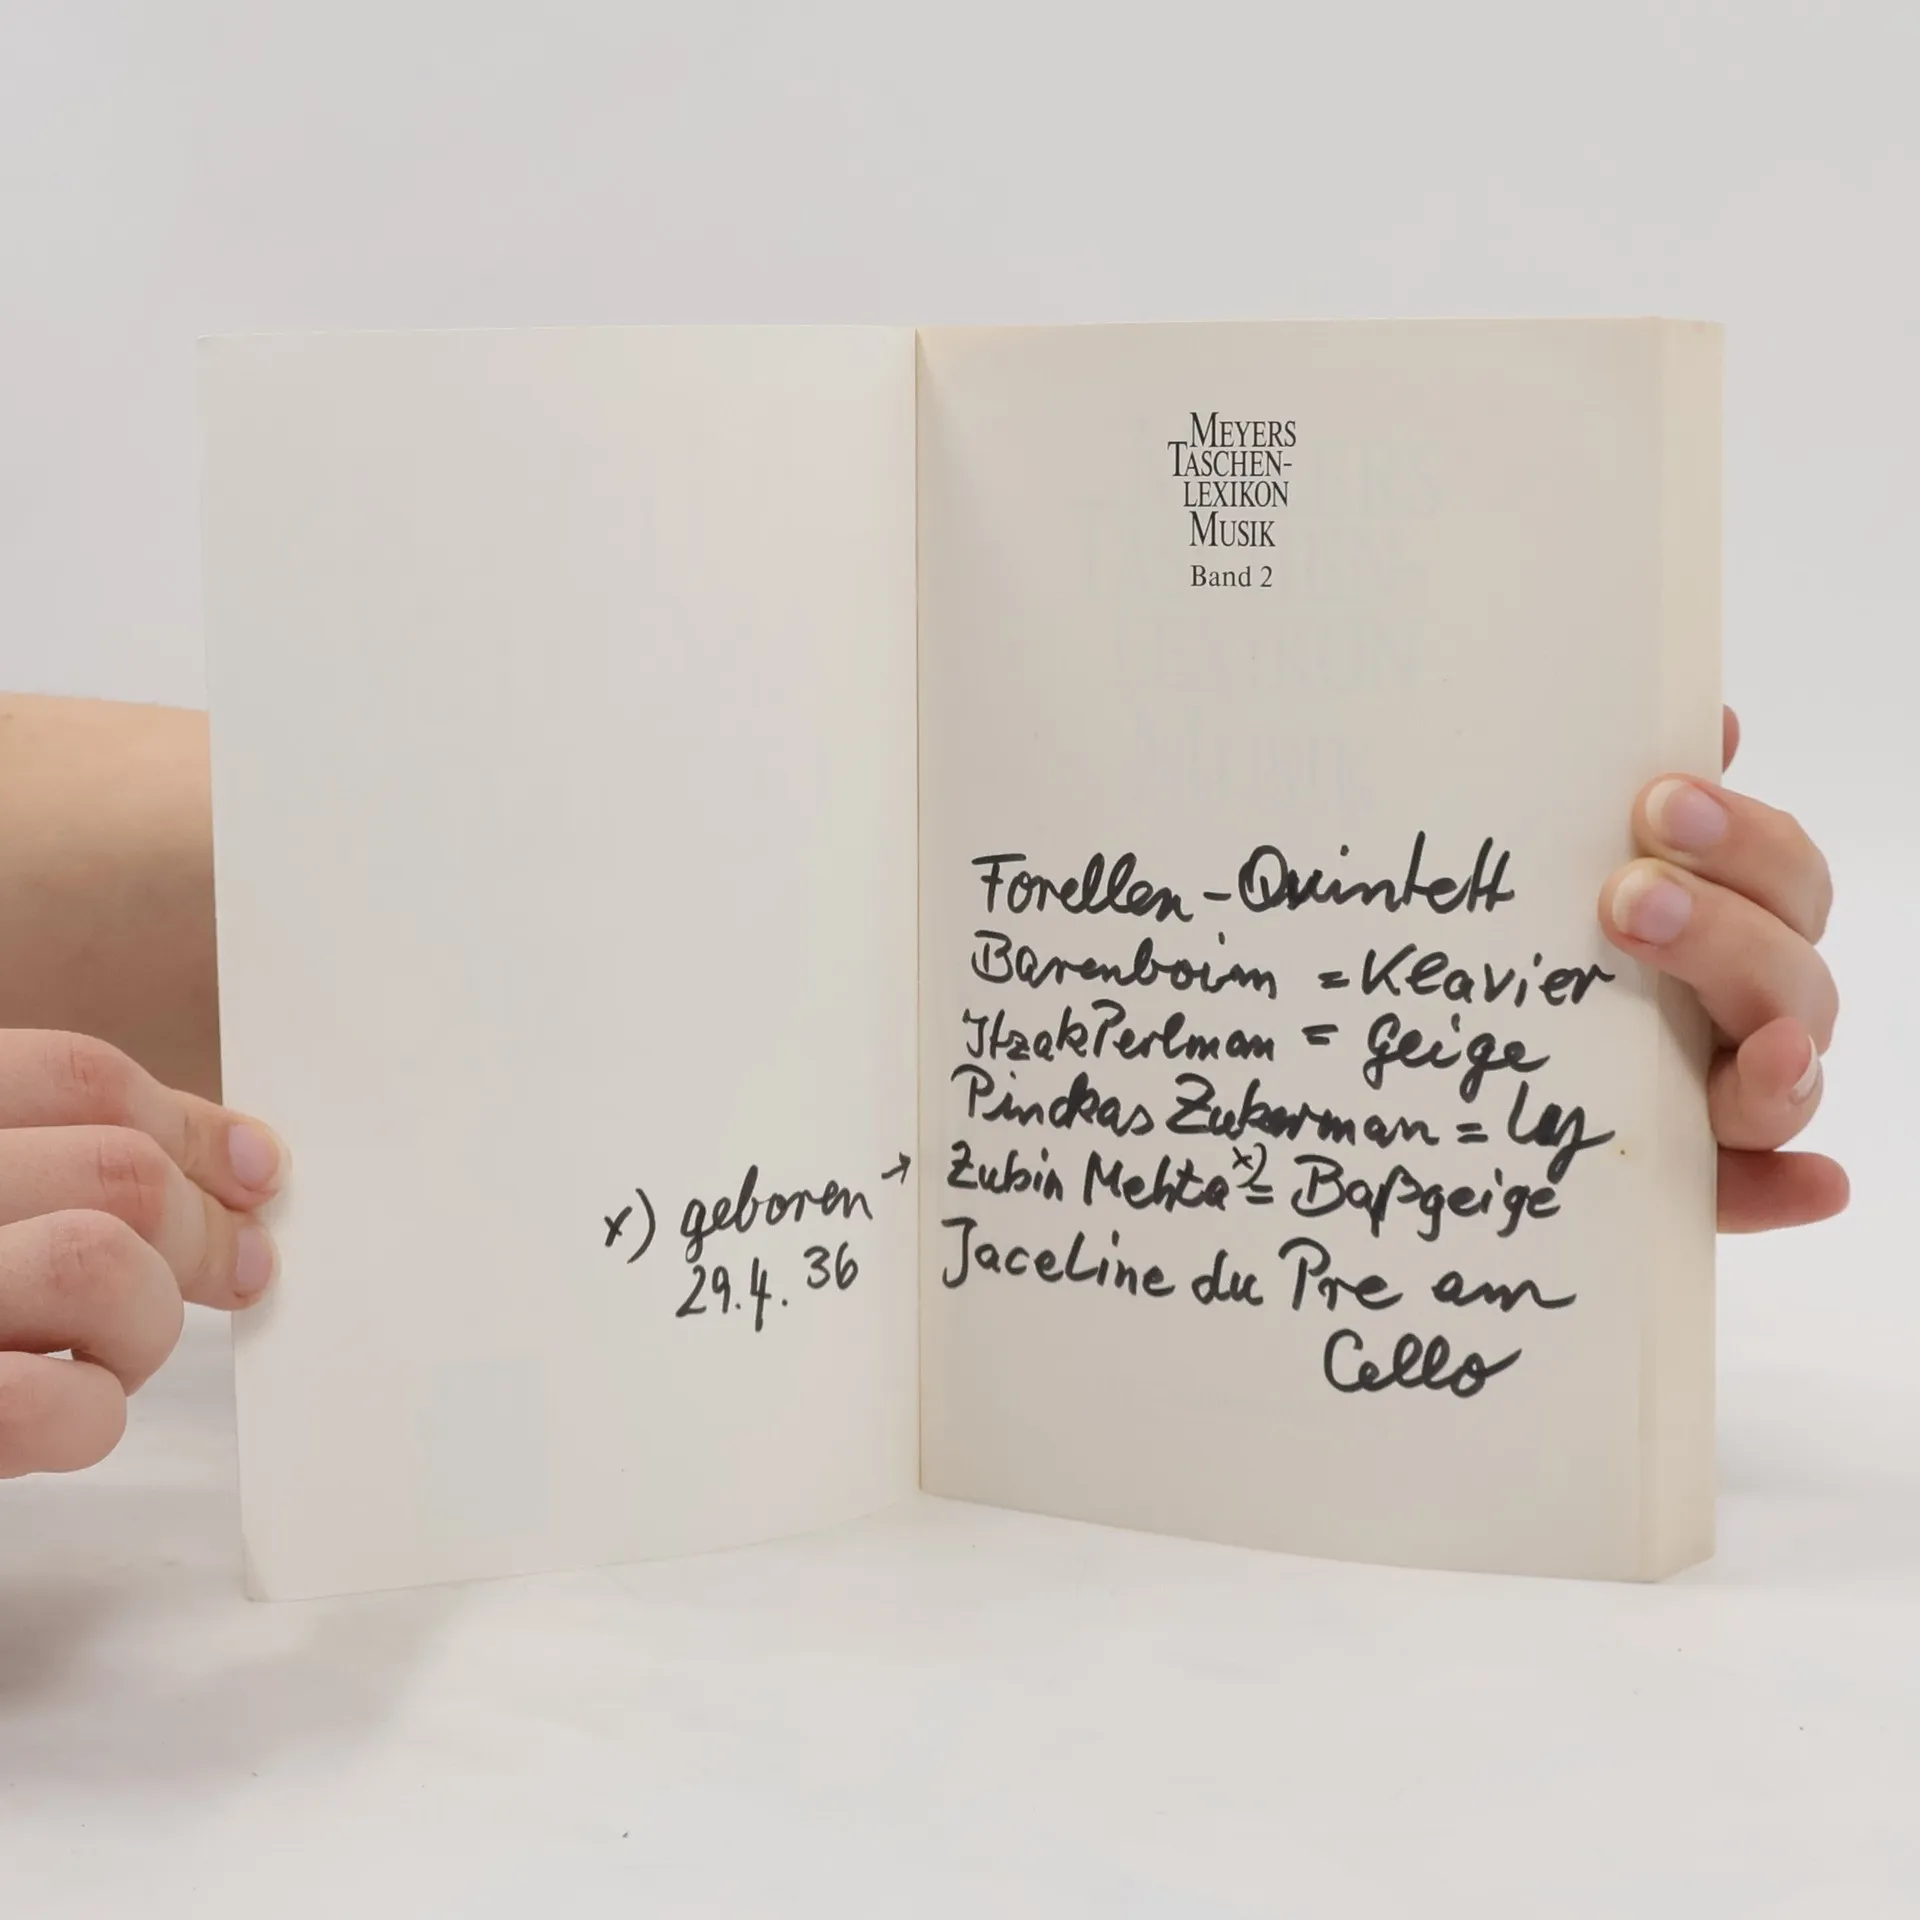 MEYERS
TASCHEN-
LEXIKON
MUSIK
Band 2
Forellen-Quintett
Barenboim = Klavier
Itzak Perlman = Geige
Pinckas Zukerman =
Zubin Mehta x) = Baßgeige
Jaceline du Pre am
Cello
x) geboren →
29.4.36